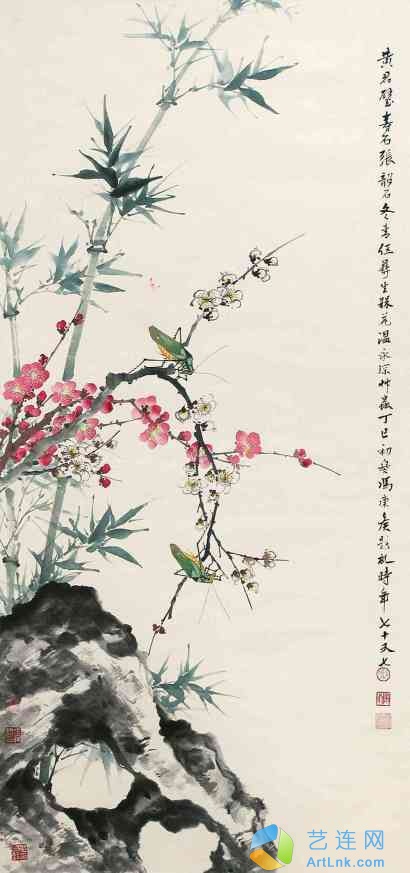 黄君璧寿石張韶石冬青伍彝生株花温永琛艸蟲丁巳初冬馮康侯題記時年七十又七
艺连网
ArtLnk.com